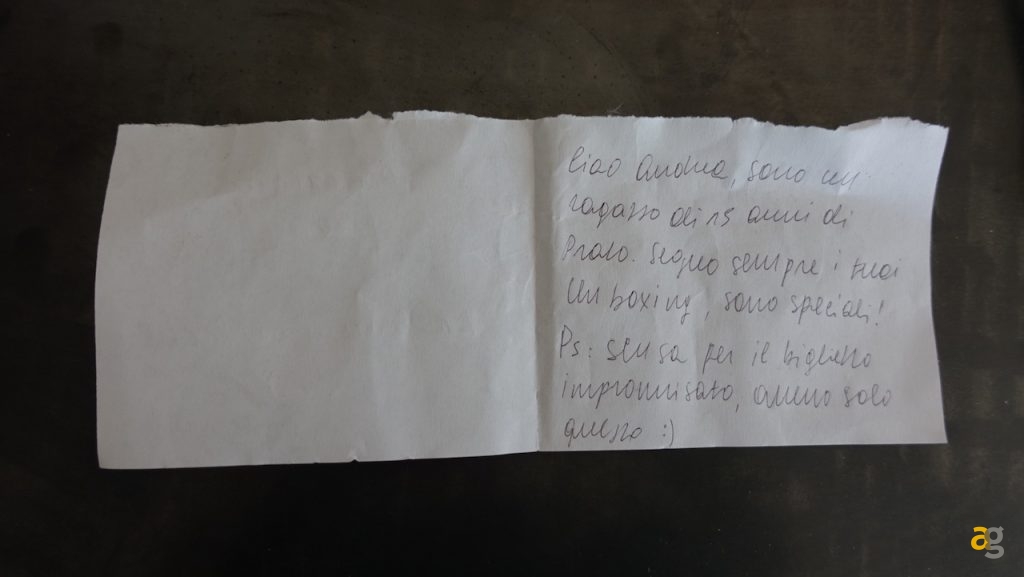 Ciao Andrea, sono un
ragazzo di 15 anni di
Prato. Seguo sempre i tuoi
Unboxing, sono speciali!
Ps: scusa per il biglietto
improvvisato, avevo solo
questo :)
ag